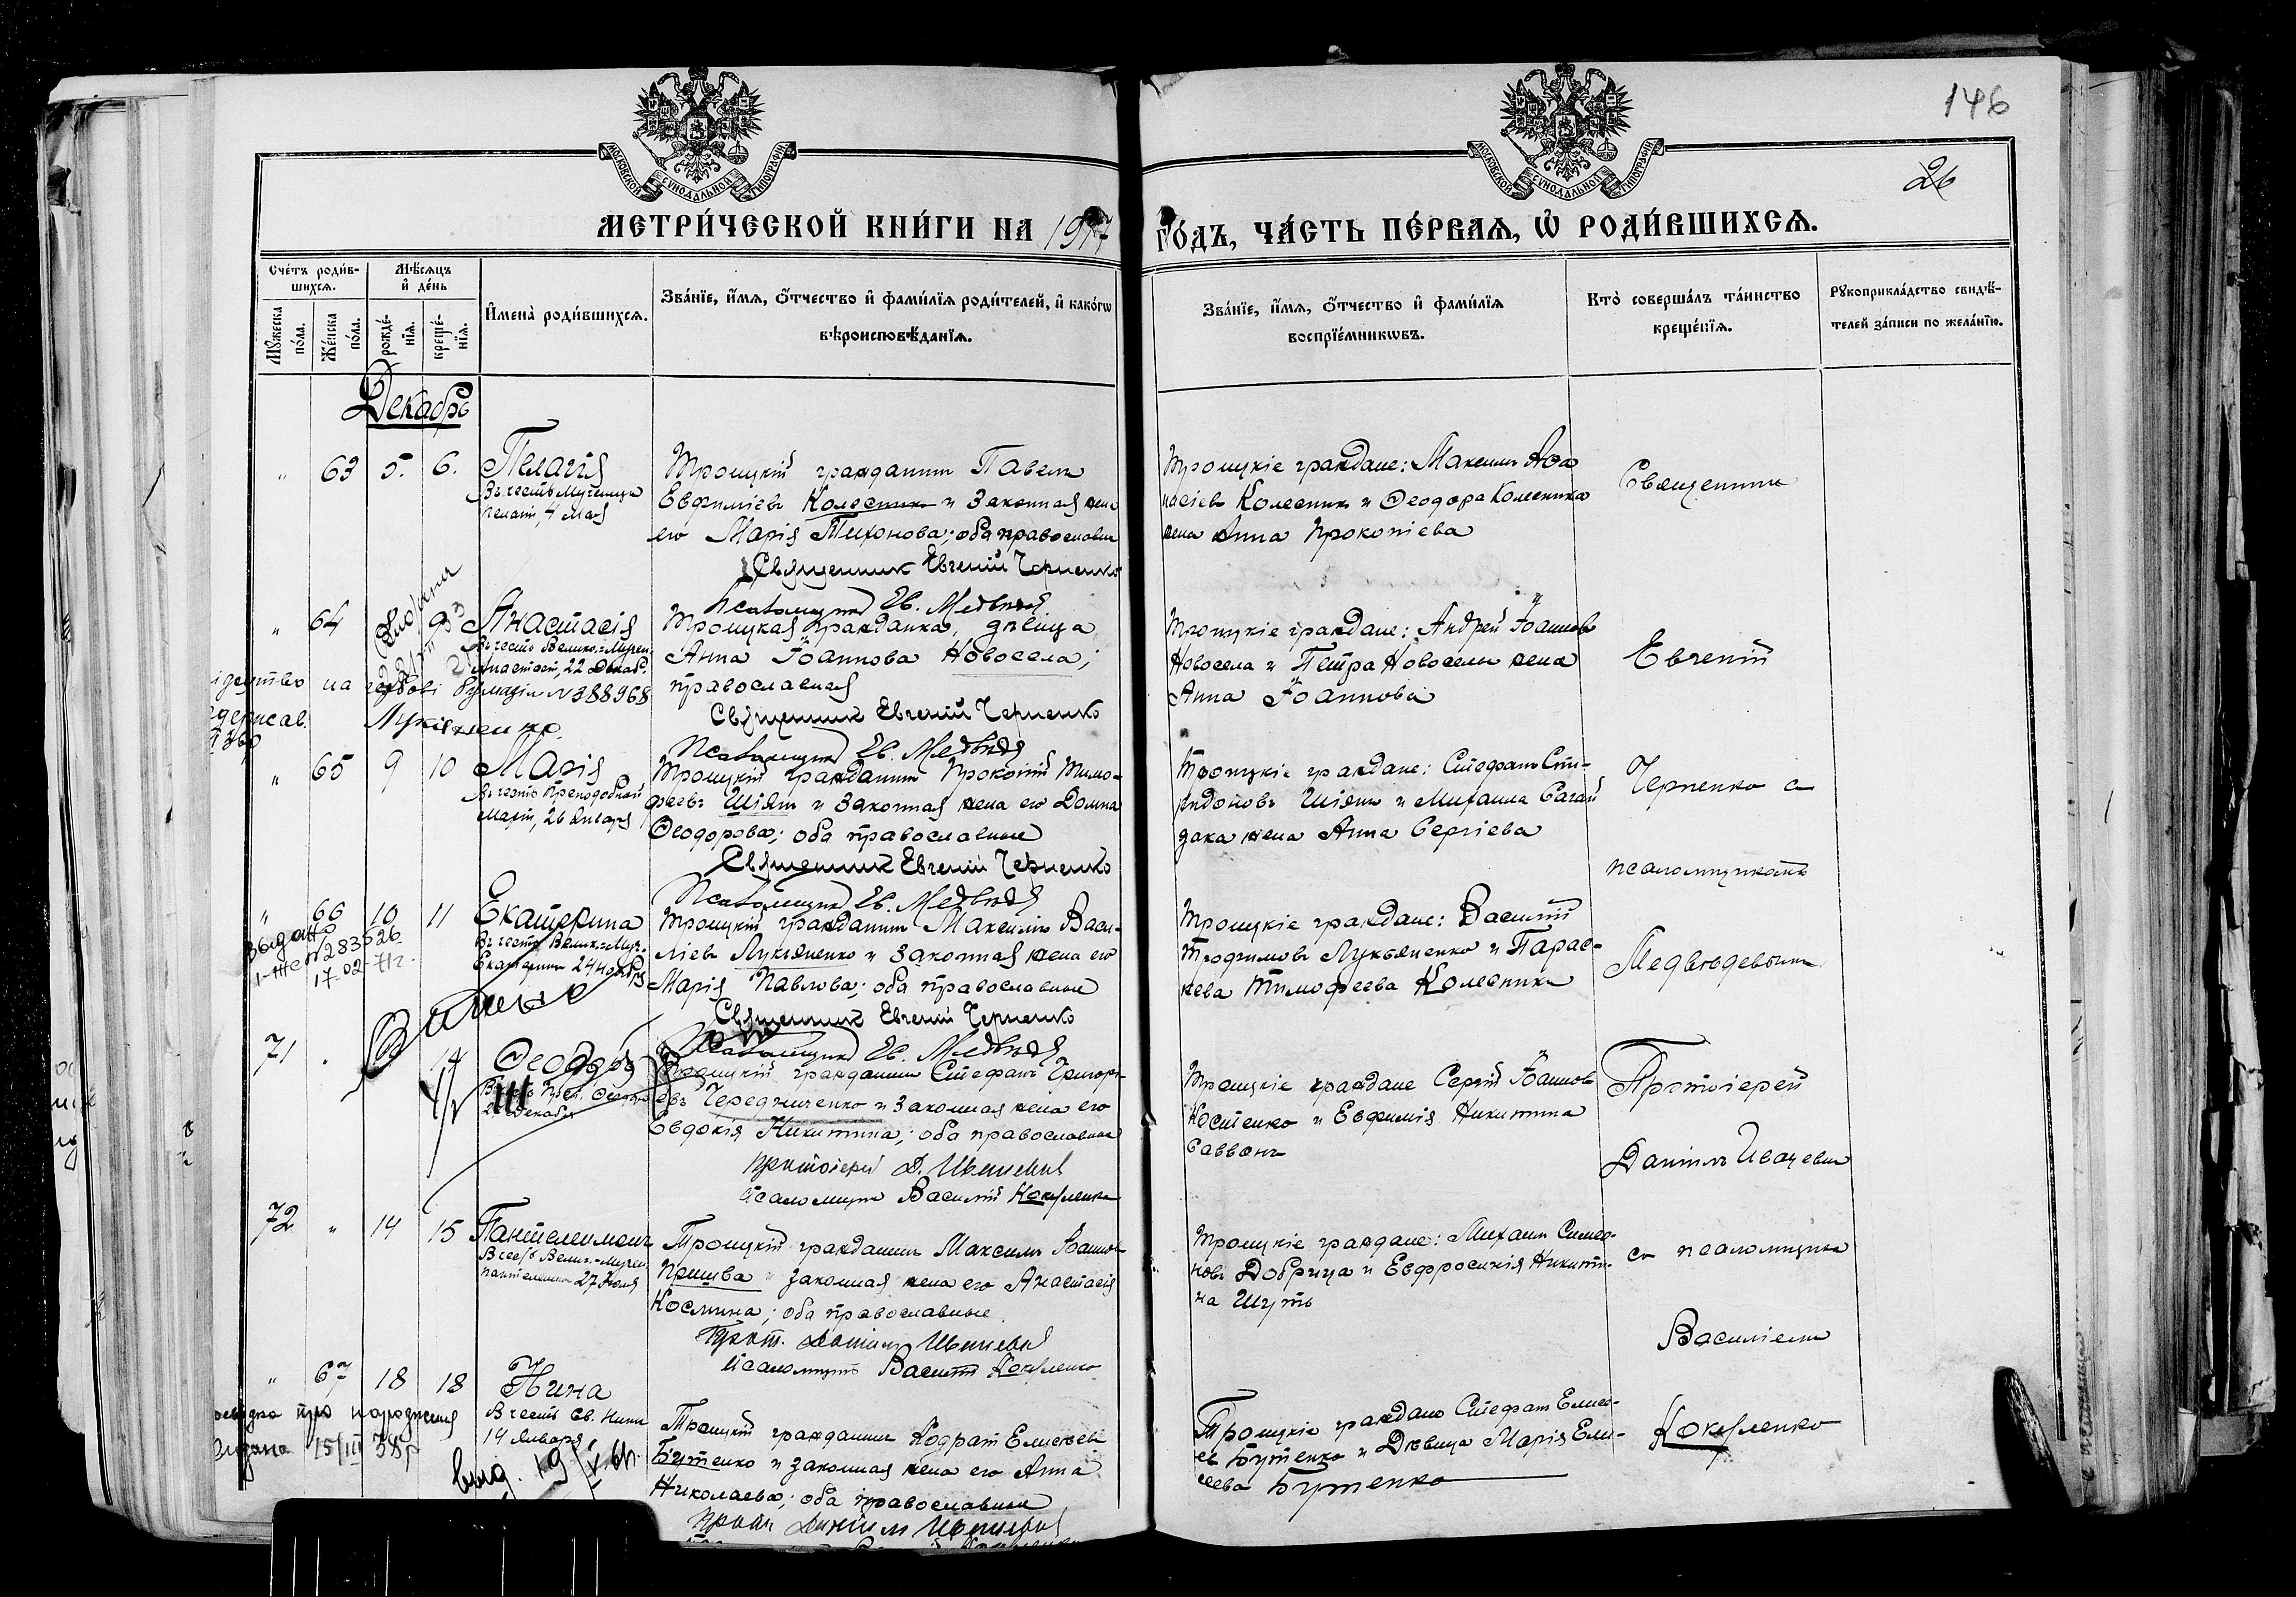 146
26
МОСКОВСКОЙ СѴНОДАЛЬНОЙ ТИПОГРАФІИ
МОСКОВСКОЙ СѴНОДАЛЬНОЙ ТИПОГРАФІИ
МЕТРИ́ЧЕСКОЙ КНИ́ГИ НА 1917 ГО́ДЪ, ЧА́СТЬ ПЕ́РВАЯ, Ѽ РОДИ́ВШИХСЯ.
Сче́тъ роди́в-
шихся.
Мꙋжеска по́ла.
Же́нска по́ла.
Мѣ́сяцъ и҆ де́нь
рожде́-
нїя.
креще́-
нїя.
И҆мена̀ роди́вшихся.
Зва́нїе, и҆́мя, ѻ҆́тчество и҆ фами́лїя роди́телей, и҆ како́гѡ
вѣроисповѣ́данїя.
Зва́нїе, и҆́мя, ѻ҆́тчество и҆ фами́лїя
воспрїе́мникѡвъ.
Кто̀ соверша́лъ та́инство
креще́нїя.
Рꙋкоприкла́дство свидѣ́-
телей за́писи по жела́нїю.
Декабрь
" 63 5. 6. Пелагія
Въ честь Мученицы
Пелагіи, 4 Мая
Троицкій гражданинъ Павелъ
Евфиміевъ Колесникъ и законная жена
его Марія Тихонова; оба православные
Священник Евгеній Черненко
Псаломщикъ Ев. Медвѣдевъ
Троицкіе граждане: Максимъ Афа
насіевъ Колесникъ и Ѳеодора Колесника
жена Анна Прокопіева
Священникъ
" 64 9 Анастасія
Въ честь Велико-Мучен.
Анастасіи, 22 Декаб.
на гербові бумазі N 388968
Лукіяненко
Троицкая гражданка, дѣвица
Анна Іоаннова Новосела;
православная
Священник Евгеній Черненко
Псаломщикъ Ев. Медвѣдевъ
Троицкіе граждане: Андрей Іоанновъ
Новосела и Петра Новоселы жена
Анна Іоаннова
Евгеній
" 65 9 10 Марія
Въ честь Преподобной
Маріи, 26 Января
Троицкій гражданинъ Прокопій Тимо-
феевъ Шіянъ и законная жена его Домна
Ѳеодорова; оба православные
Священник Евгеній Черненко
Псаломщикъ Ев. Медвѣдевъ
Троицкіе граждане: Стефанъ Спи-
ридоновъ Шіянъ и Михаила Сагай
дака жена Анна Сергіева
Черненко съ
псаломщикомъ
" 66 10 11 Екатерина
Въ честь Велик.-Муч.
Екатерины 24 Ноября
Выдано
N 283526
17-02-71г.
Троицкій гражданинъ Максимъ Васи-
ліевъ Лукьяненко и законная жена его
Марія Павлова; оба православные
Священник Евгеній Черненко
Псаломщикъ Ев. Медвѣдевъ
Троицкіе граждане: Василій
Трофимовъ Лукьяненко и Парас-
кева Тимофеева Колесникъ
Медвѣдевымъ
71 14 Ѳеодоръ
Троицкій гражданинъ Стефанъ Григорі-
евъ Чередниченко и законная жена его
Евдокія Никитина; оба православные
Протоіерей Д. Ивачевич
Псаломщикъ Василій Кокуленко
Троицкіе граждане Сергій Іоанновъ
Костенко и Евфимія Никитина
Саввонъ
Протоіерей
Даніилъ Ивачевичъ
72 " 14 15 Пантелеимонъ
В честь Велик.-Мучен.
Пантелеимона 27 Іюля
Троицкій гражданинъ Максимъ Іоанновъ
Прошва и законная жена его Анастасія
Космина; оба православные.
Прот. Даніилъ Ивачевич
Псаломщикъ Василій Кокуленко
Троицкіе граждане: Михаилъ Симео-
новъ Добрица и Евфросинія Никити-
на Шуть
съ псаломщикомъ
Василіемъ
" 67 18 18 Нина
В честь Св. Нины
14 Января
про народження
видана 15/III 38р
выд. 19
Троицкій гражданинъ Кодратъ Елисеевъ
Бутенко и законная жена его Анна
Николаева; оба православные
Прот. Даніилъ Ивачевич
Троицкіе граждане Стефанъ Елисе-
евъ Бутенко и Дѣвица Марія Ели-
сеева Бутенко
Кокуленко